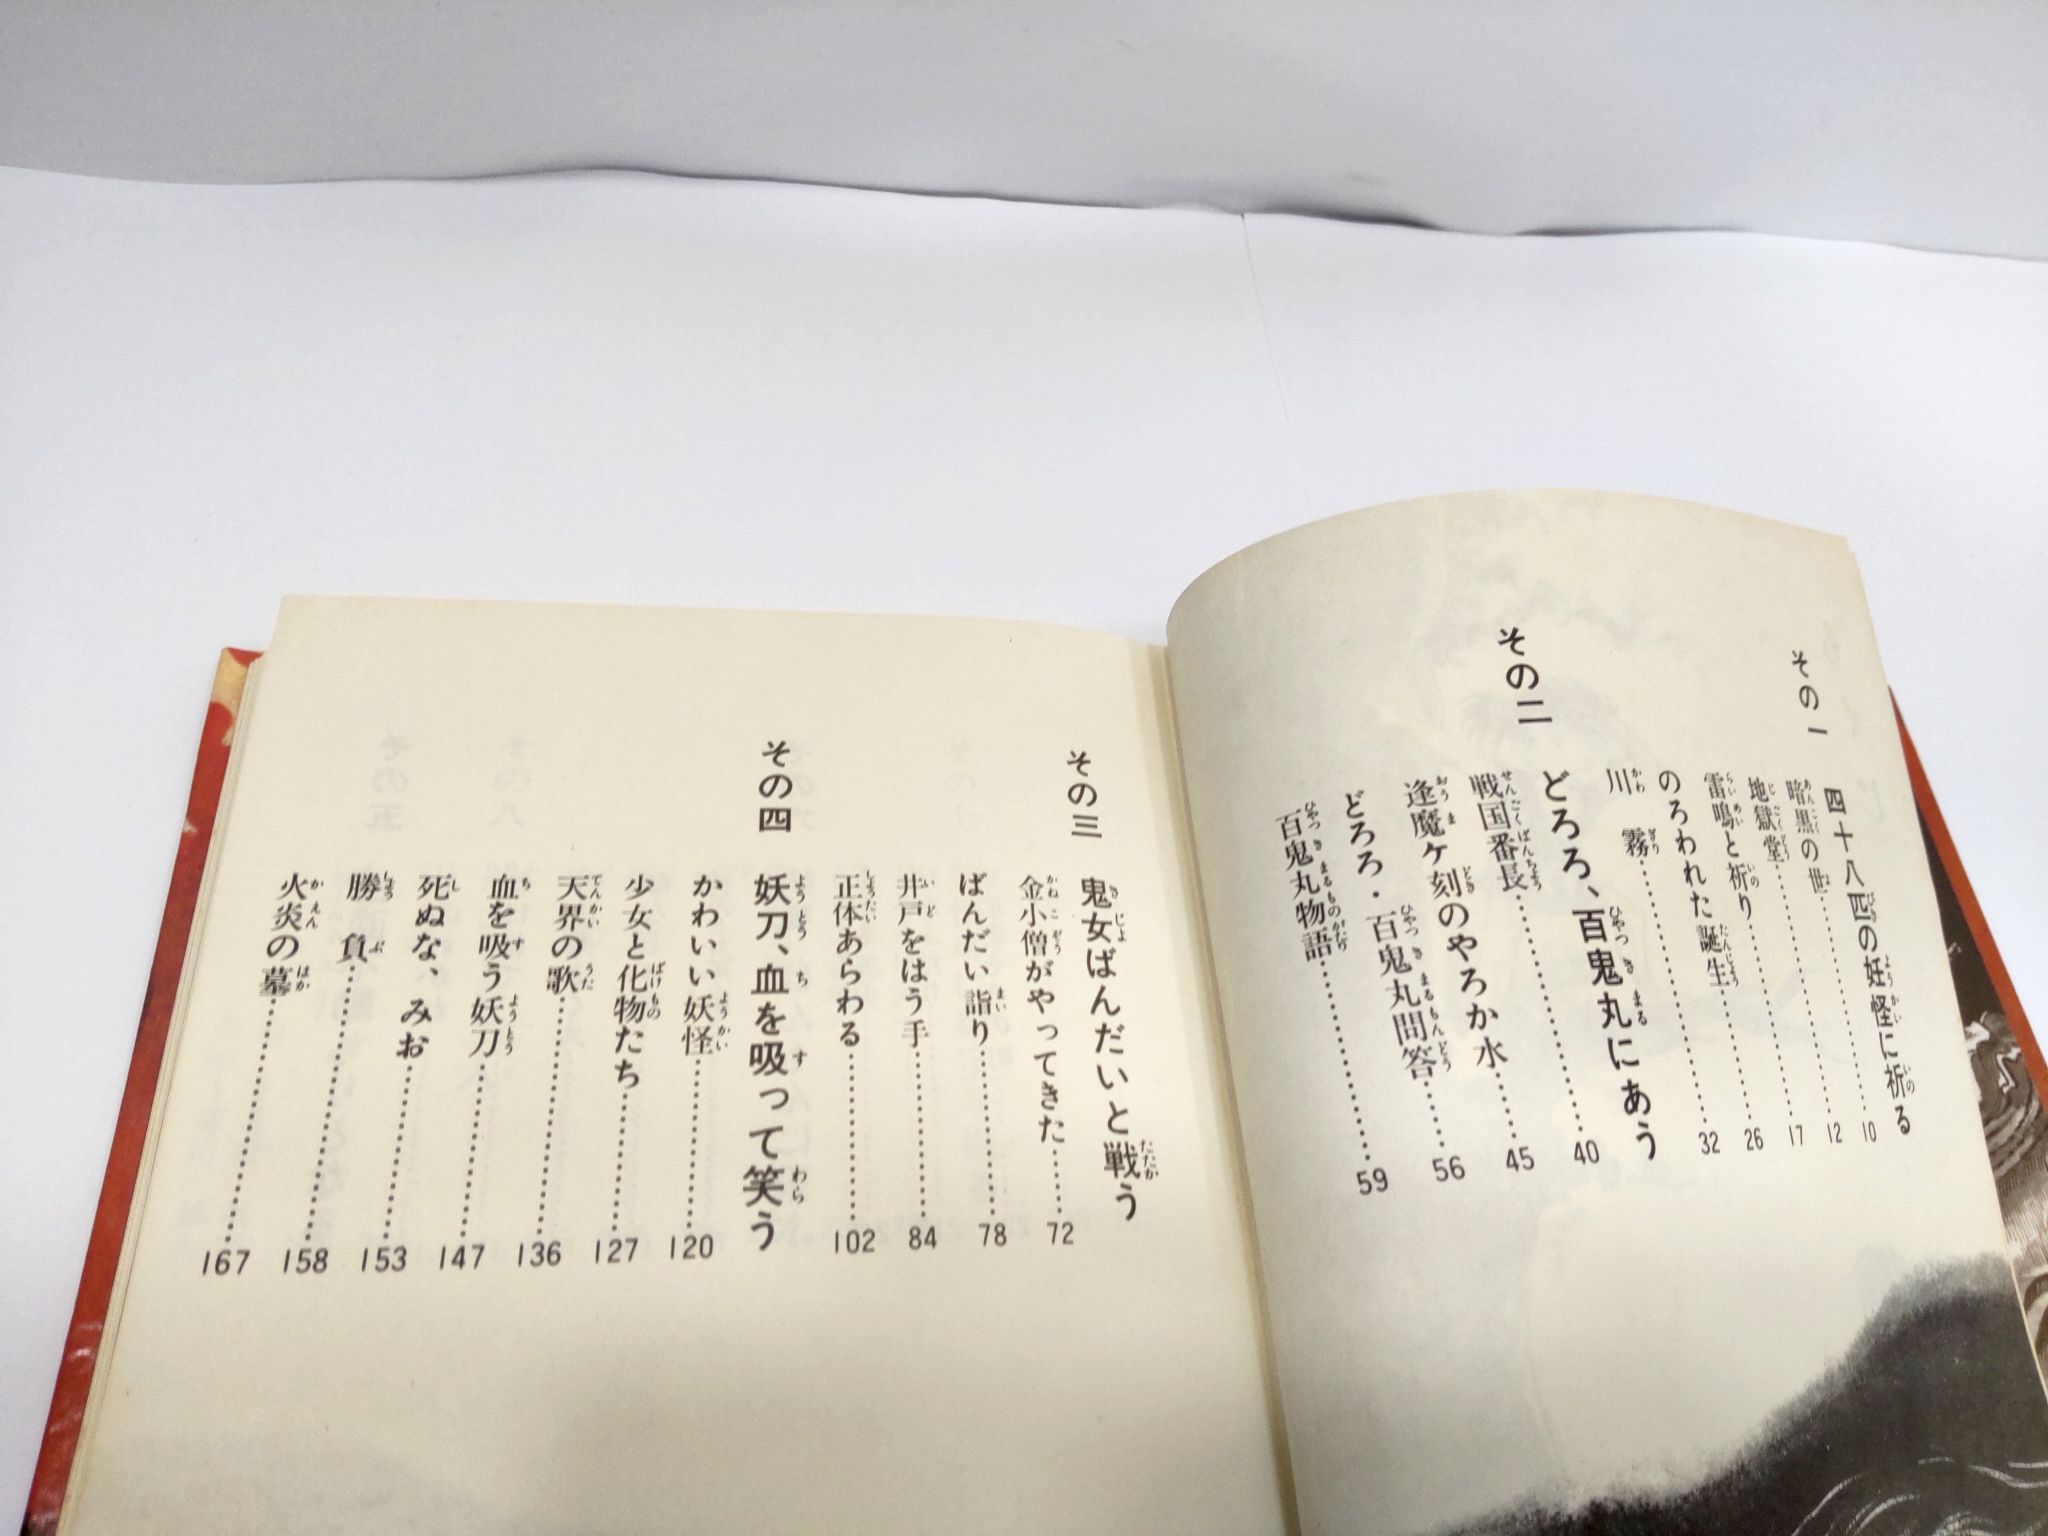 その一 四十八匹の妖怪に祈る
暗黒の世……………10
地獄堂……………12
雷鳴と祈り……………17
のろわれた誕生……………26
川 霧……………32
その二 どろろ、百鬼丸にあう
戦国番長……………40
逢魔ケ刻のやろか水……45
どろろ・百鬼丸問答……56
百鬼丸物語……………59
その三 鬼女ばんだいと戦う
金小僧がやってきた……72
ばんだい詣り……………78
井戸をはう手……………84
正体あらわる……………102
その四 妖刀、血を吸って笑う
かわいい妖怪……………120
少女と化物たち……………127
天界の歌……………136
血を吸う妖刀……………147
死ぬな、みお……………153
勝 負……………158
火炎の墓……………167